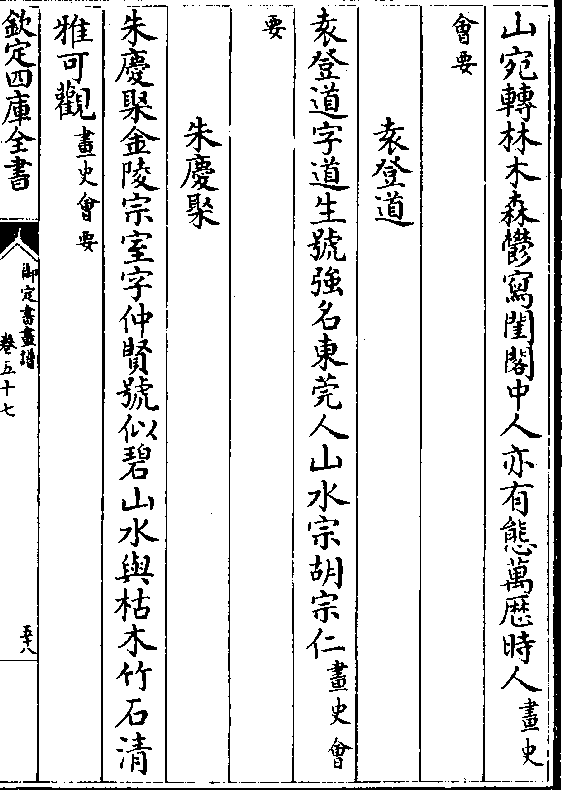 山宛轉林木森鬱寫閨閣中人亦有態萬厯時人畫史
會要
袁登道
袁登道字道生號強名東莞人山水宗胡宗仁畫史會
要
朱慶聚
朱慶聚金陵宗室字仲賢號似碧山水與枯木竹石清
雅可觀畫史會要
欽定四庫全書
御定書畫譜
卷五十七
五十八